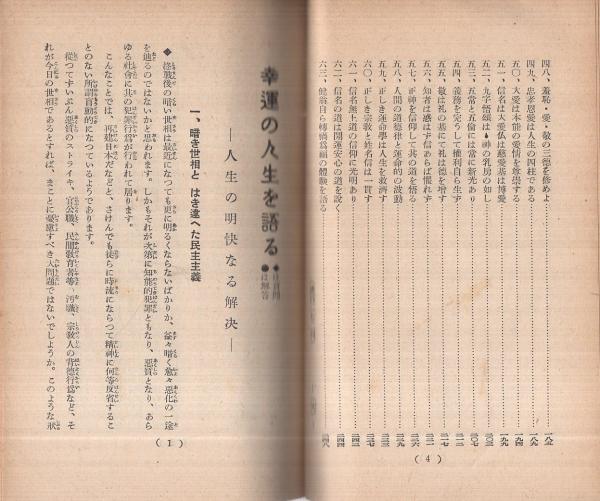 四八、羞恥・愛・敬の三徳を修めよ…………一八三
四九、忠孝恩愛は人生の四柱である…………一八九
五〇、大愛は本能の愛情を尊崇する…………一九四
五一、信名は大愛仏は慈愛基は博愛…………一九九
五二、九字悟頌は神の乳房の如し…………二〇三
五三、五常と五倫は常に新光あり…………二〇七
五四、義務を完うして権利自ら生ず…………二一二
五五、敬は礼の基にて礼は徳を増す
五六、知者は惑はず信あらば懼れず
五七、正神を信仰して其の道を悟る
五八、人間の道徳律と運命的の波動
五九、正しき運命學は人生を救済す
六〇、正しき宗教と姓名信は一貫す
六一、信名無上道の信仰に光明あり
六二、信名の道は開運安心の道を説く
六三、健翁自ら轉禍爲福の體驗を語る…………二四八
( 4 )
幸運の人生を語る
●は質問
●は解答
―人生の明快なる解決―
一、暗き世相と はき違へた民主主義
◆ 終戦後の暗い世相は最近になつても更に明るくならないばかりか、益々暗く愈々悪化の一途
を辿るのではないかと思われます。しかもそれが次第に知能的犯罪ともなり、悪質となり、あら
ゆる社會に其の犯罪行爲が行われて居ります。
こんなことでは、再建日本だなどと、さけんでも徒らに時流にならつて精神に何等反省するこ
とのない所謂盲動的になつているようであります。
從つてずいぶん悪質のストライキ、官公職、民間教育者等の汚職、宗教人の背徳行爲など、そ
れが今日の世相であるとすれば、まことに憂慮すべき大問題ではないでしようか。このような状
( 1 )